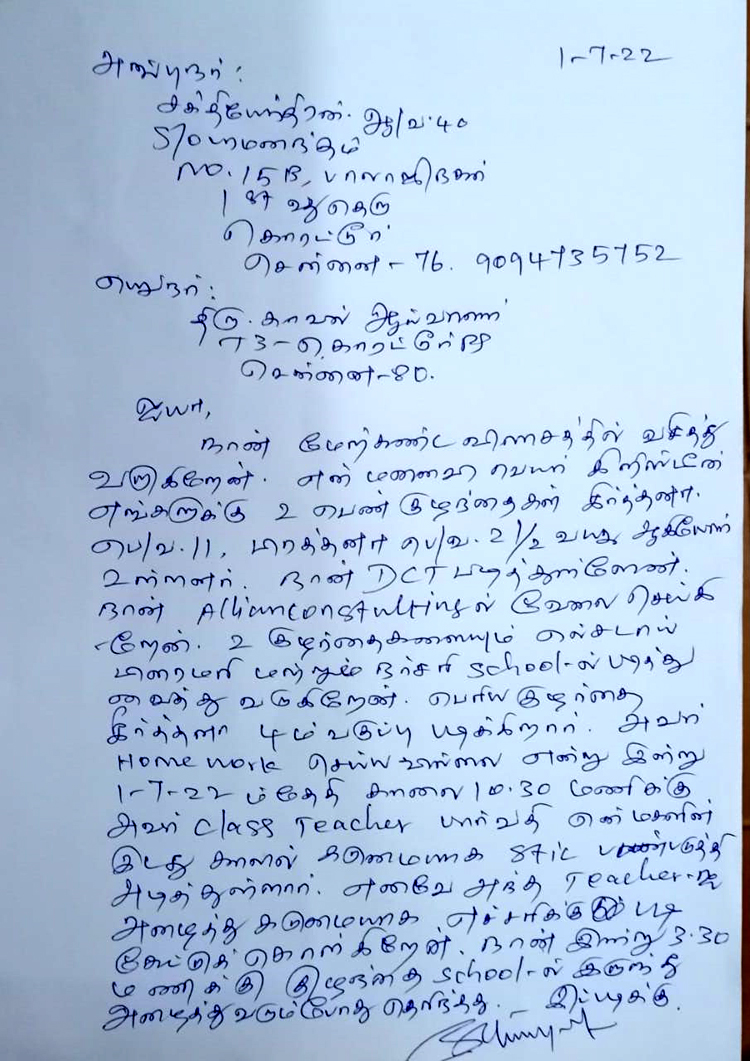 1-7-22
அனுப்புநர்:
சக்தியேந்திரன். ஆ/வ.40
S/o ராமனைந்தம்
NO. 15B, பாலாஜிநகர்
1st வது தெரு
கொரட்டூர்
சென்னை - 76. 9094735752
பெறுநர்:
திரு. காவல் ஆய்வாளர்
T3-கொரட்டூர் PS
சென்னை-80.
ஐயா,
நான் மேற்கண்ட விலாசத்தில் வசித்து
வருகிறேன். என் மனைவி பெயர் கிறிஸ்டீன்
எங்களுக்கு 2 பெண் குழந்தைகள் கீர்த்தனா.
பெ/வ.11, பிரார்த்தனா பெ/வ. 2 1/2 வயது ஆகியோர்
உள்ளனர். நான் DCT படித்துள்ளேன்.
நான் Allianconsulting ல் வேலை செய்கி
-றேன். 2 குழந்தைகளையும் எல்சடாய்
பிரைமரி மற்றும் நர்சரி school-ல் படித்து
வைத்து வருகிறேன். பெரிய குழந்தை
கீர்த்தனா 4ம் வகுப்பு படிக்கிறார். அவர்
Home work செய்யவில்லை என்று இன்று
1-7-22 ம்தேதி காலை 10.30 மணிக்கு
அவர் class Teacher பார்வதி என் மகளின்
இடது காலில் கடுமையாக Stic பயன்படுத்தி
அடித்துள்ளார். எனவே அந்த Teacher-ஐ
அழைத்து கடுமையாக எச்சரிக்கும் படி
கேட்டுக் கொள்கிறேன். நான் இன்று 3.30
மணிக்கு குழந்தை school-ல் இருந்து
அழைத்து வரும்போது தெரிந்தது. - இப்படிக்கு.